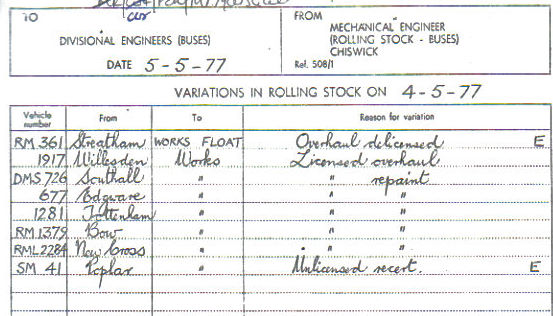 TO
cir
DIVISIONAL ENGINEERS (BUSES)
DATE 5-5-77
FROM
MECHANICAL ENGINEER
(ROLLING STOCK - BUSES)
CHISWICK
Ref. 508/1
VARIATIONS IN ROLLING STOCK ON 4-5-77
Vehicle number From To Reason for variation
RM 361 Streatham WORKS FLOAT Overhaul delicensed E
1917 Willesden Works Licensed overhaul
DMS 726 Southall " " repaint
677 Edgware " " "
1281 Tottenham " " "
RM 1379 Bow " " "
RML 2284 New Cross " " "
SM 41 Poplar " Unlicensed recert. E